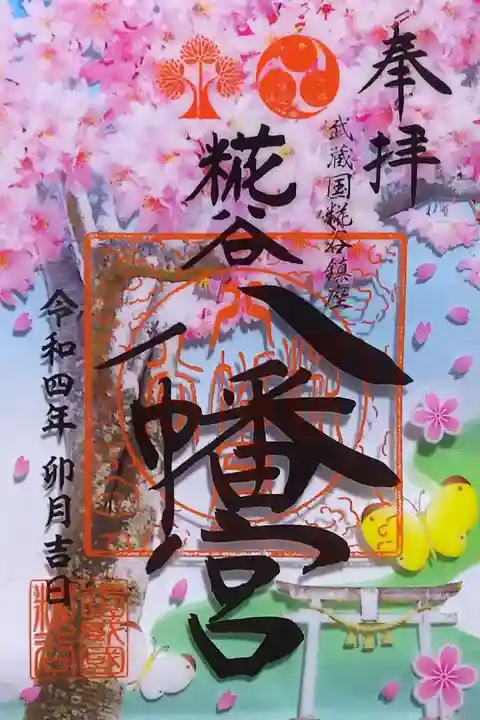 奉拝
武蔵国糀谷鎮座
糀谷
八幡宮
令和四年 卯月吉日